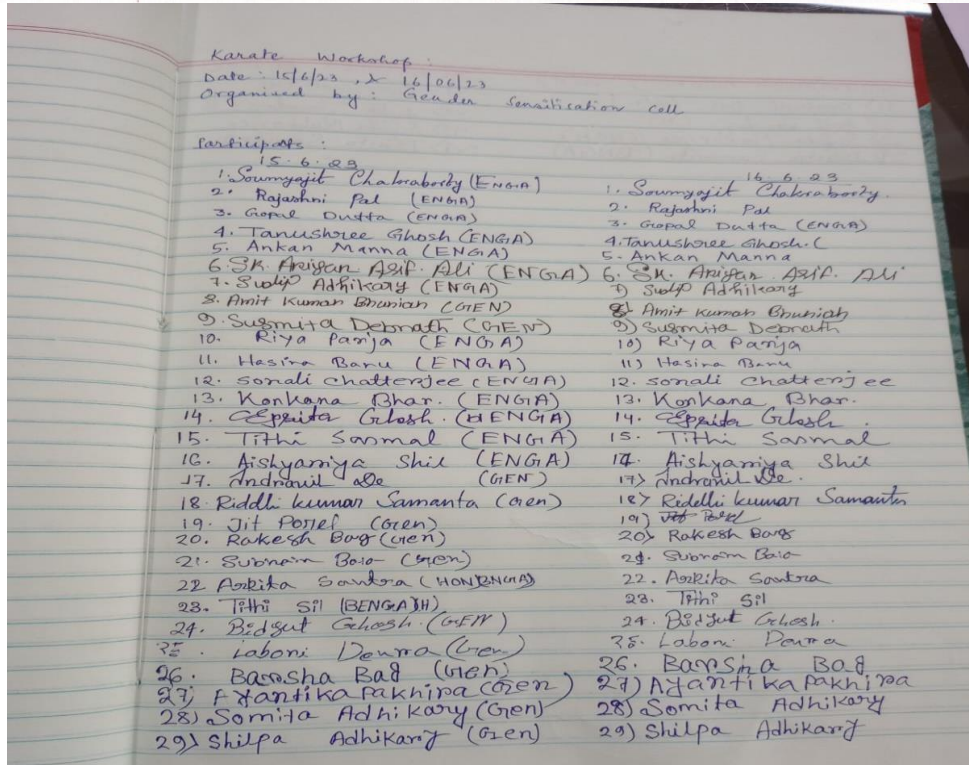 Karate Workshop :
Date : 15/6/23 , & 16/06/23
Organised by : Gender Sensitisation Cell
Participants :
15.6.23
1. Soumyajit Chakraborty (ENGA)
2. Rajashni Pal (ENGA)
3. Gopal Dutta (ENGA)
4. Tanushree Ghosh (ENGA)
5. Ankan Manna (ENGA)
6. SK. Ariyan Asif. Ali (ENGA)
7. Sudip Adhikary (ENGA)
8. Amit Kumar Bhuniah (GEN)
9. Susmita Debnath (GEN)
10. Riya Parija (ENGA)
11. Hasina Banu (ENGA)
12. Sonali Chatterjee (ENGA)
13. Konkana Bhar. (ENGA)
14. Epsita Ghosh. (ENGA)
15. Tithi Sasmal (ENGA)
16. Aishyarriya Shil (ENGA)
17. Indranil De (GEN)
18. Riddhi Kumar Samanta (Gen)
19. Jit Porel (Gen)
20. Rakesh Bag (Gen)
21. Subnam Bala (Gen)
22 Ankita Santra (HONENGA)
23. Tithi Sil (BENGA)(H)
24. Bidyut Ghosh. (GEN)
25. Laboni Denra (Gen)
26. Barsha Bag (Gen)
27) Ayantika Pakhira (Gen)
28) Somita Adhikary (Gen)
29) Shilpa Adhikary (Gen)
16.6.23
1. Soumyajit Chakraborty.
2. Rajashni Pal
3. Gopal Dutta (ENGA)
4. Tanushree Ghosh. (
5. Ankan Manna
6. SK. Ariyan Asif. Ali
7) Sudip Adhikary
8) Amit Kumar Bhuniah
9) Susmita Debnath
10) Riya Parija
11) Hasina Banu
12. Sonali Chatterjee
13. Konkana Bhar.
14. Epsita Ghosh.
15. Tithi Sasmal
16. Aishyarriya Shil
17) Indranil De.
18) Riddhi Kumar Samanta
19) Jit Porel
20) Rakesh Bag
21. Subnam Bala
22. Ankita Santra
23. Tithi Sil
24. Bidyut Ghosh.
25. Laboni Denra
26. Barsha Bag
27) Ayantika Pakhira
28) Somita Adhikary
29) Shilpa Adhikary